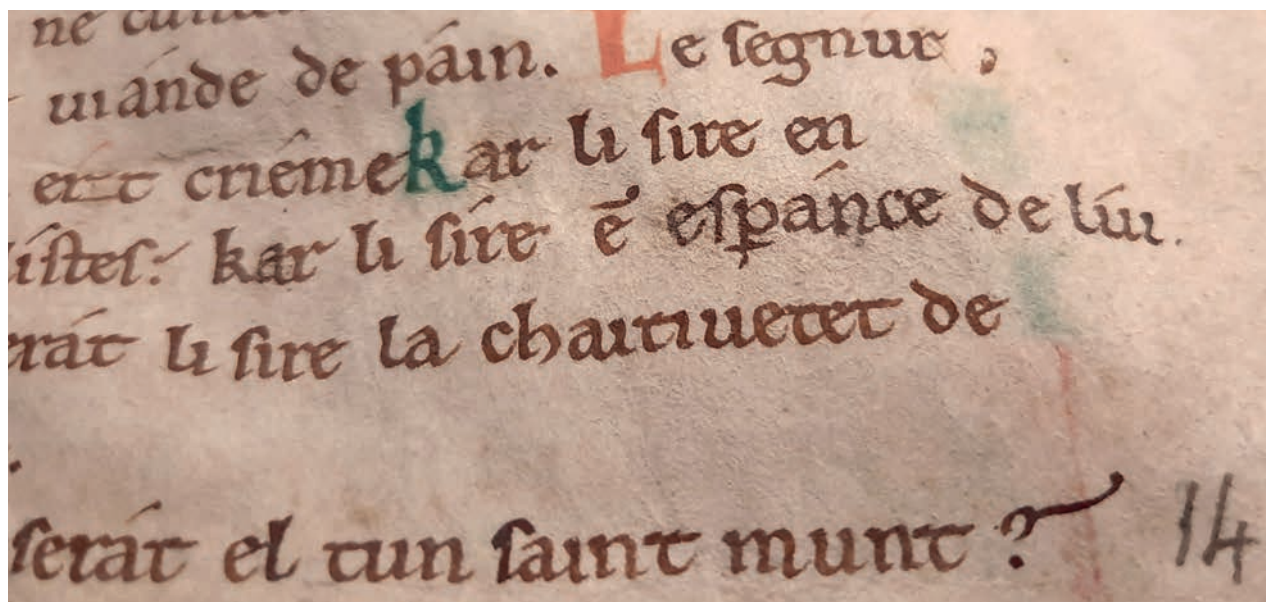 uiande de páin. Le segnur,
ert criême kar li sire en
istes: kar li síre ē espánce de lúi.
erát li sire la chaitiuetet de
serát el tun saint munt? 14